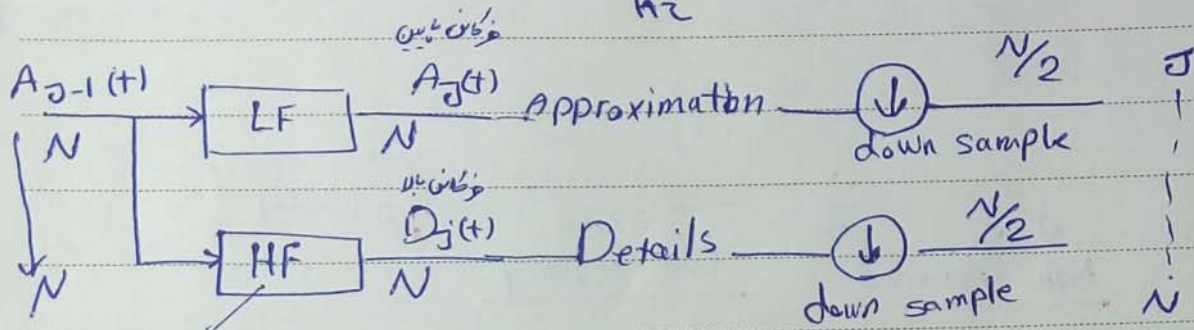 A2
فرکانس پایین
A_{J-1}(t) LF A_J(t) Approximation ↓ N/2 J
N N down sample
فرکانس بالا
HF D_j(t) Details ↓ N/2
N N down sample N